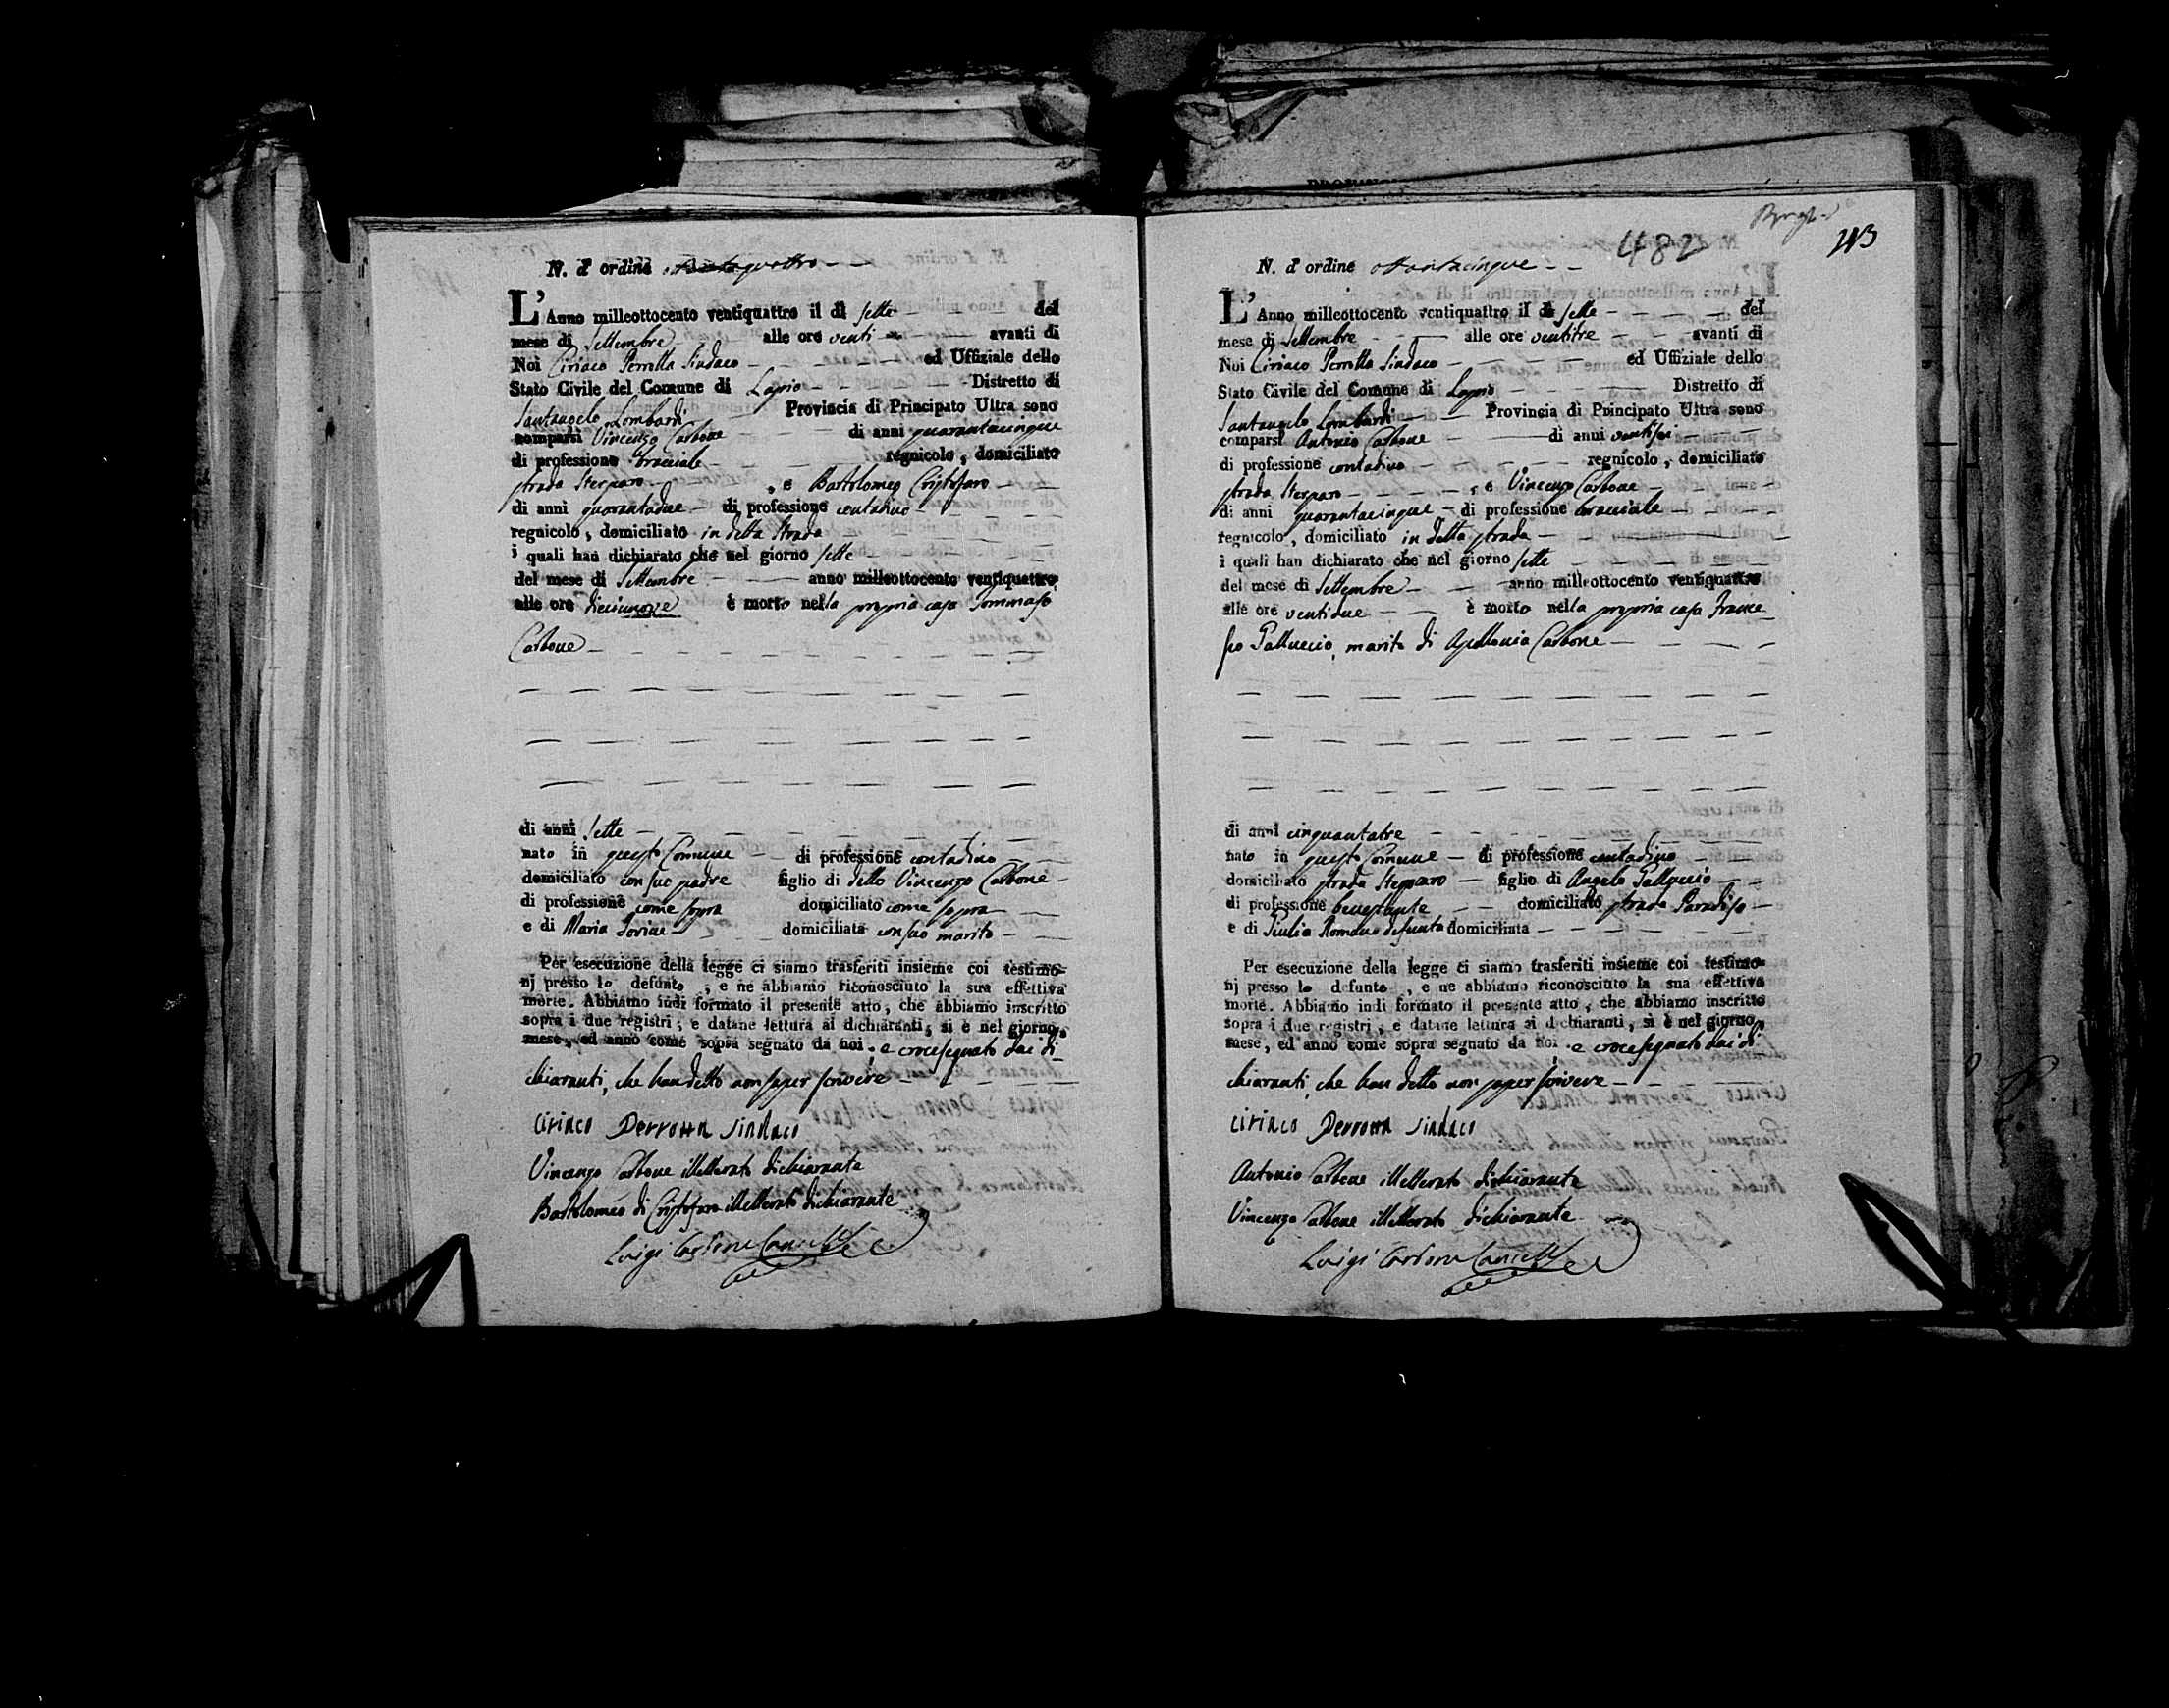 N. d' ordine ottantaquattro
L'Anno milleottocento ventiquattro il dì sette del
mese di Settembre alle ore venti avanti di
Noi Ciriaco Perrotta Sindaco ed Uffiziale dello
Stato Civile del Comune di Lapio Distretto di
Santangelo Lombardi Provincia di Principato Ultra sono
comparsi Vincenzo Carbone di anni quarantacinque
di professione bracciale regnicolo, domiciliato
strada Sterparo, e Bartolomeo Cristofaro
di anni quarantadue di professione contadino
regnicolo, domiciliato in detta strada
i quali han dichiarato che nel giorno sette
del mese di Settembre anno milleottocento ventiquattro,
alle ore diecinnove è morto nella propria casa Tommaso
Carbone
di anni sette
nato in questo Comune di professione contadino
domiciliato con suo padre figlio di detto Vincenzo Carbone
di professione come sopra domiciliato come sopra
e di Maria domiciliata con suo marito
Per esecuzione della legge ci siamo trasferiti insieme coi testimo-
nj presso lo defunto, e ne abbiamo riconosciuto la sua effettiva
morte. Abbiamo indi formato il presente atto, che abbiamo inscritto
sopra i due registri, e datane lettura ai dichiaranti, si è nel giorno,
mese, ed anno come sopra segnato da noi, e crocesegnato dai di-
chiaranti, che han detto non saper scrivere
Ciriaco Perrotta Sindaco
Vincenzo Carbone illetterato dichiarante
Bartolomeo di Cristofaro illetterato dichiarante
Luigi Carbone
482
113
N. d' ordine ottantacinque
L'Anno milleottocento ventiquattro il dì sette del
mese di Settembre alle ore ventitre avanti di
Noi Ciriaco Perrotta Sindaco ed Uffiziale dello
Stato Civile del Comune di Lapio Distretto di
Santangelo Lombardi Provincia di Principato Ultra sono
comparsi Antonio Carbone di anni ventisei
di professione contadino regnicolo, domiciliato
strada Sterparo, e Vincenzo Carbone
di anni quarantacinque di professione bracciale
regnicolo, domiciliato in detta strada
i quali han dichiarato che nel giorno sette
del mese di Settembre anno milleottocento ventiquattro
alle ore ventidue è morto nella propria casa France
sco Galluccio, marito di Apollonia Carbone
di anni cinquantatre
nato in questo Comune di professione contadino
domiciliato strada Sterparo figlio di Angelo Galluccio
di professione benestante domiciliato strada Paradiso
e di Giulia Romano defunta domiciliata
Per esecuzione della legge ci siamo trasferiti insieme coi testimo-
nj presso lo defunto, e ne abbiamo riconosciuto la sua effettiva
morte. Abbiamo indi formato il presente atto, che abbiamo inscritto
sopra i due registri, e datane lettura ai dichiaranti, si è nel giorno,
mese, ed anno come sopra segnato da noi. e crocesegnato dai di
chiaranti, che han detto non saper scrivere
Ciriaco Perrotta Sindaco
Antonio Carbone illetterato dichiarante
Vincenzo Carbone illetterato dichiarante
Luigi Carbone